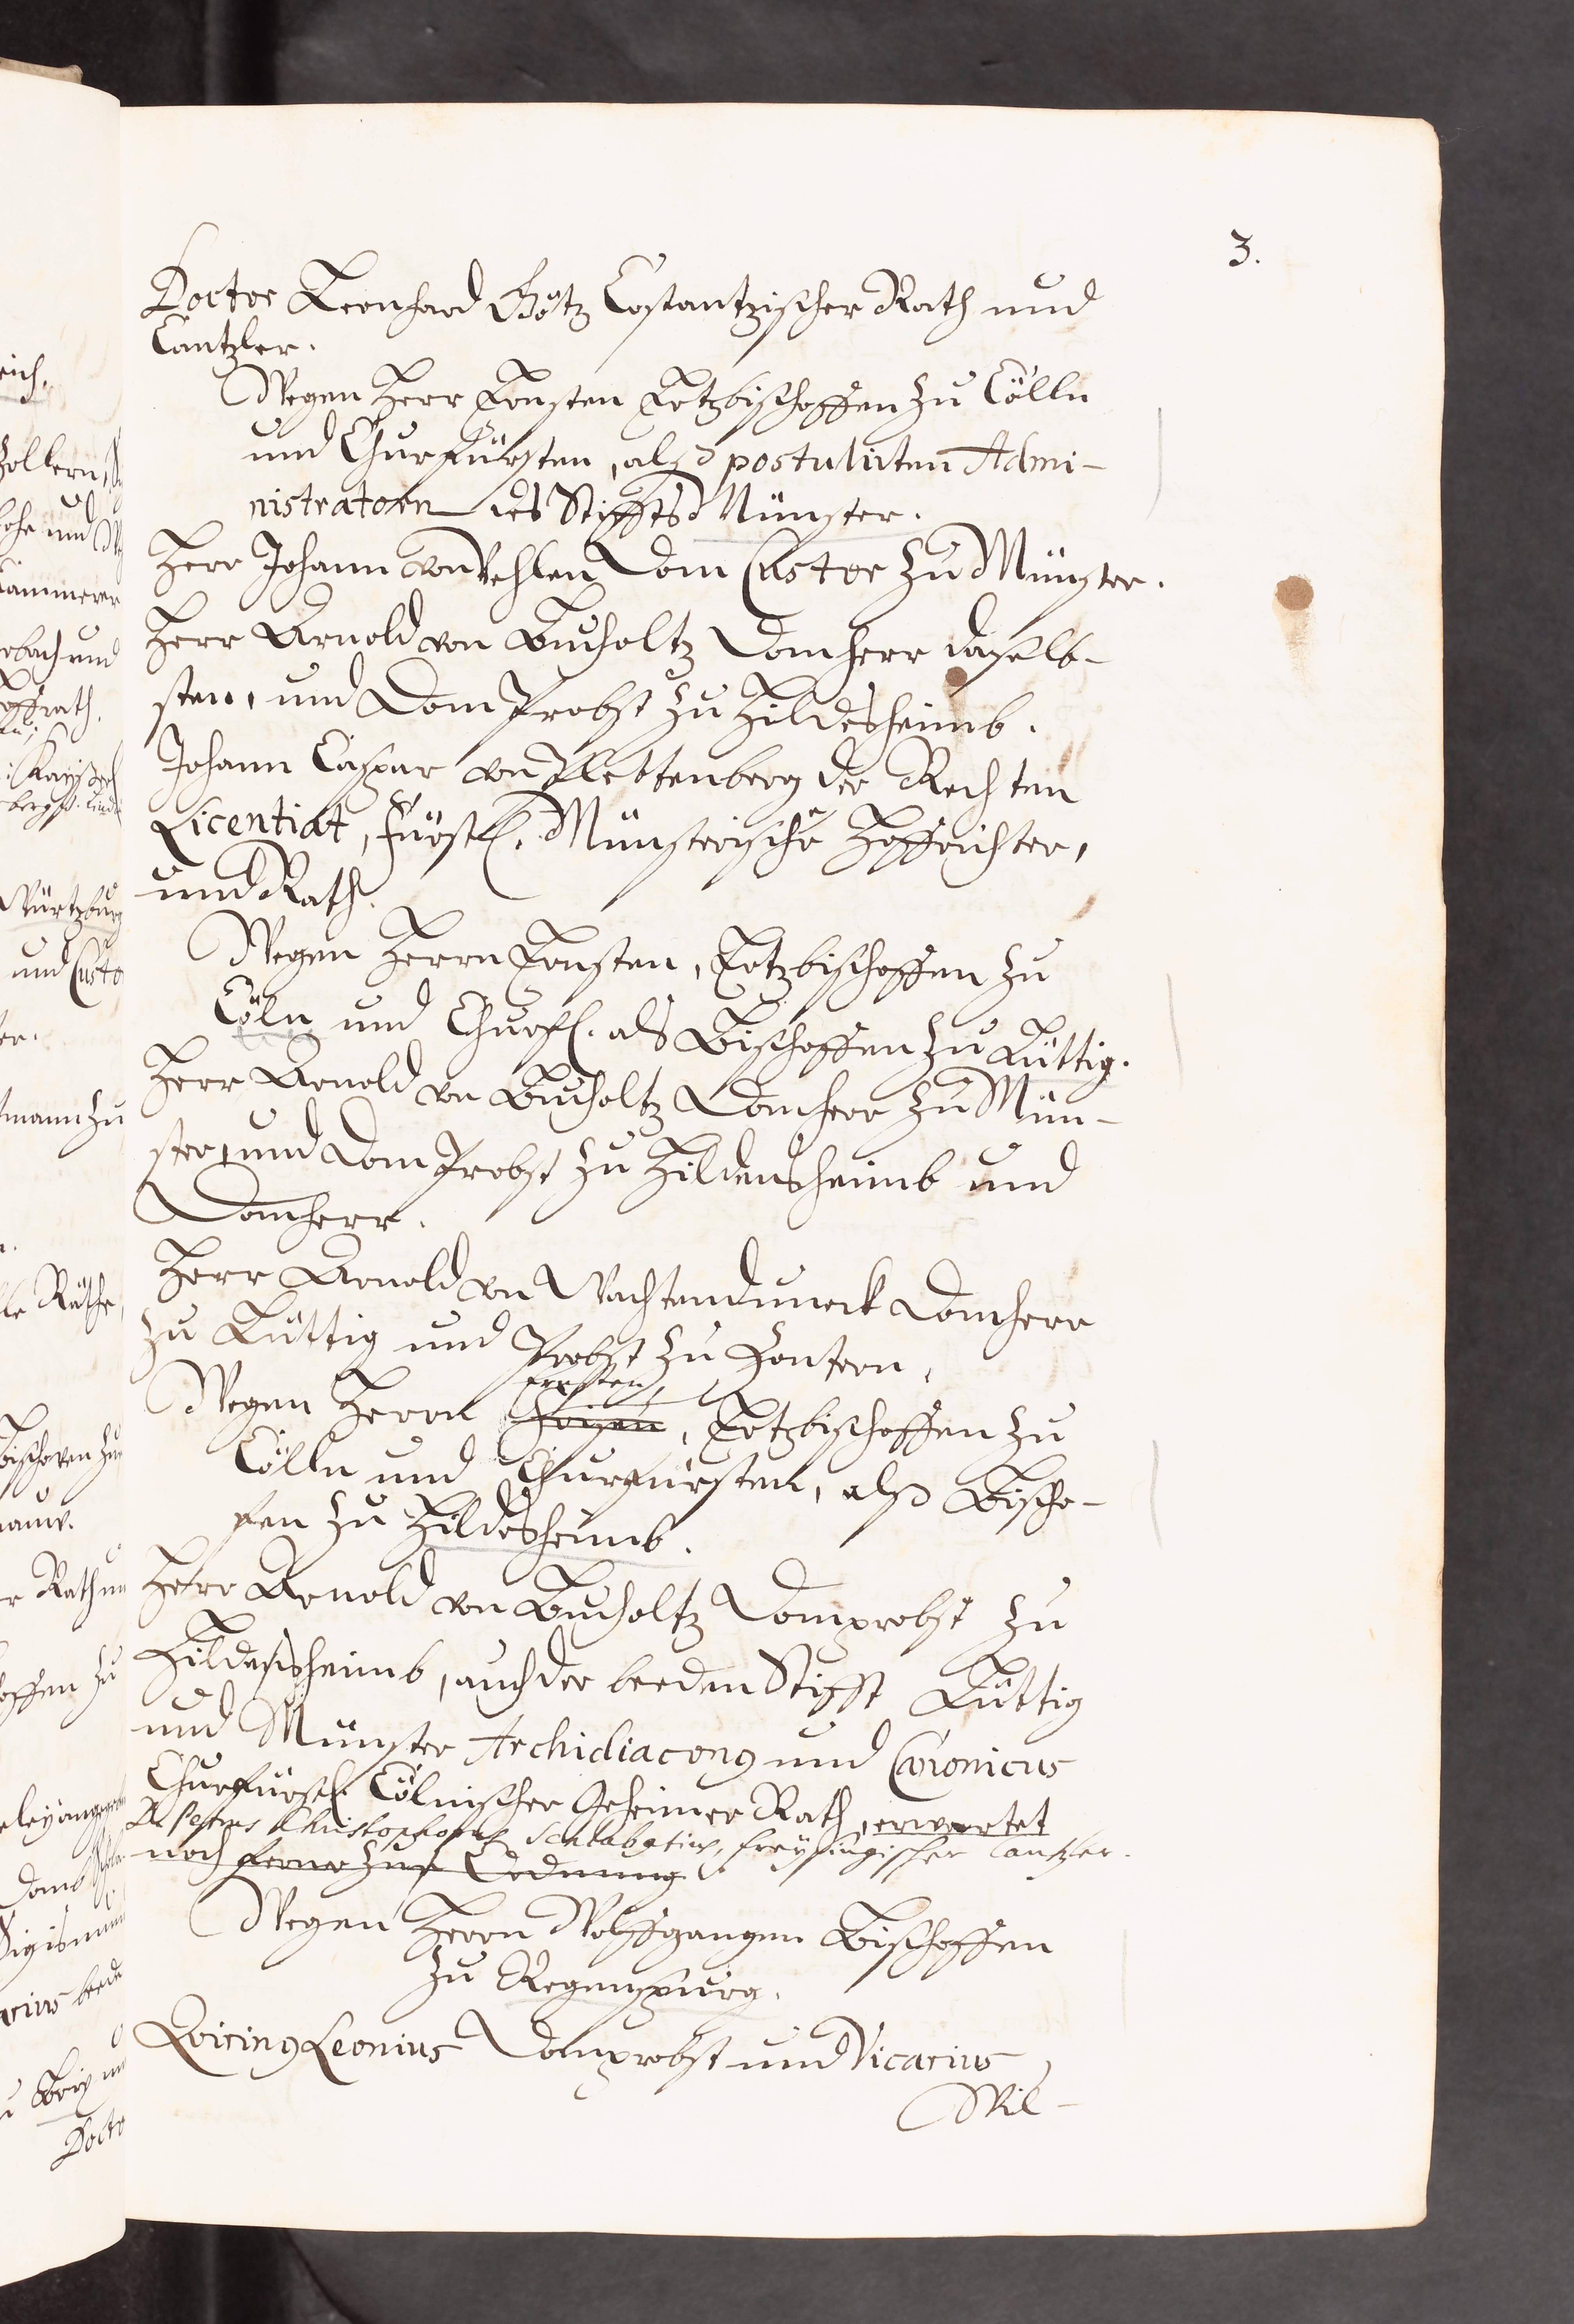 3.
Doctor Leonhard Götz Costantzischer Rath und
Cantzler.
Wegen Herr Ernsten Ertzbischoffen zu Cölln
und Churfürsten, alß postulirten Admi-
nistratorn des Stiffts Münster.
Herr Johann von Vehlen Dom Custor zu Münster.
Herr Arnold von Bucholtz Domherr daselb-
sten, und Dom Probst zu Hildesheimb.
Johann Caspar von Plettenberg der Rechten
Licentiat, Fürstl. Münsterischer Hoffrichter,
und Rath.
Wegen Herrn Ernsten, Ertzbischoffen zu
Cöln und Churfl. als Bischoffen zu Lüttig.
Herr Arnold von Bucholtz Domherr zu Mün-
ster, und Dom Probst zu Hildensheimb und
Domherr.
Herr Arnold von Wachtenduneck Domherr
zu Lüttig und Probst zu
Ernsten,
Wegen Herrn, Ertzbischoffen zu
Cölln und Churfürsten, alß Bischo-
fen zu Hildesheimb.
Herr Arnold von Bucholtz Domprobst zu
Hildeßheimb, auch der beeden Stifft Lüttig
und Münster Archidiaconus und Canonicus
Churfürstl. Cölnischer Geheimer Rath, erwartet
Christophorus freysingischer Cantzler.
noch ferner zuse Ordnung.
Wegen Herrn Wolffgangen Bischoffen
zu Regenspurg.
Quirinus Leonius Domprobst und Vicarius,
Wil-